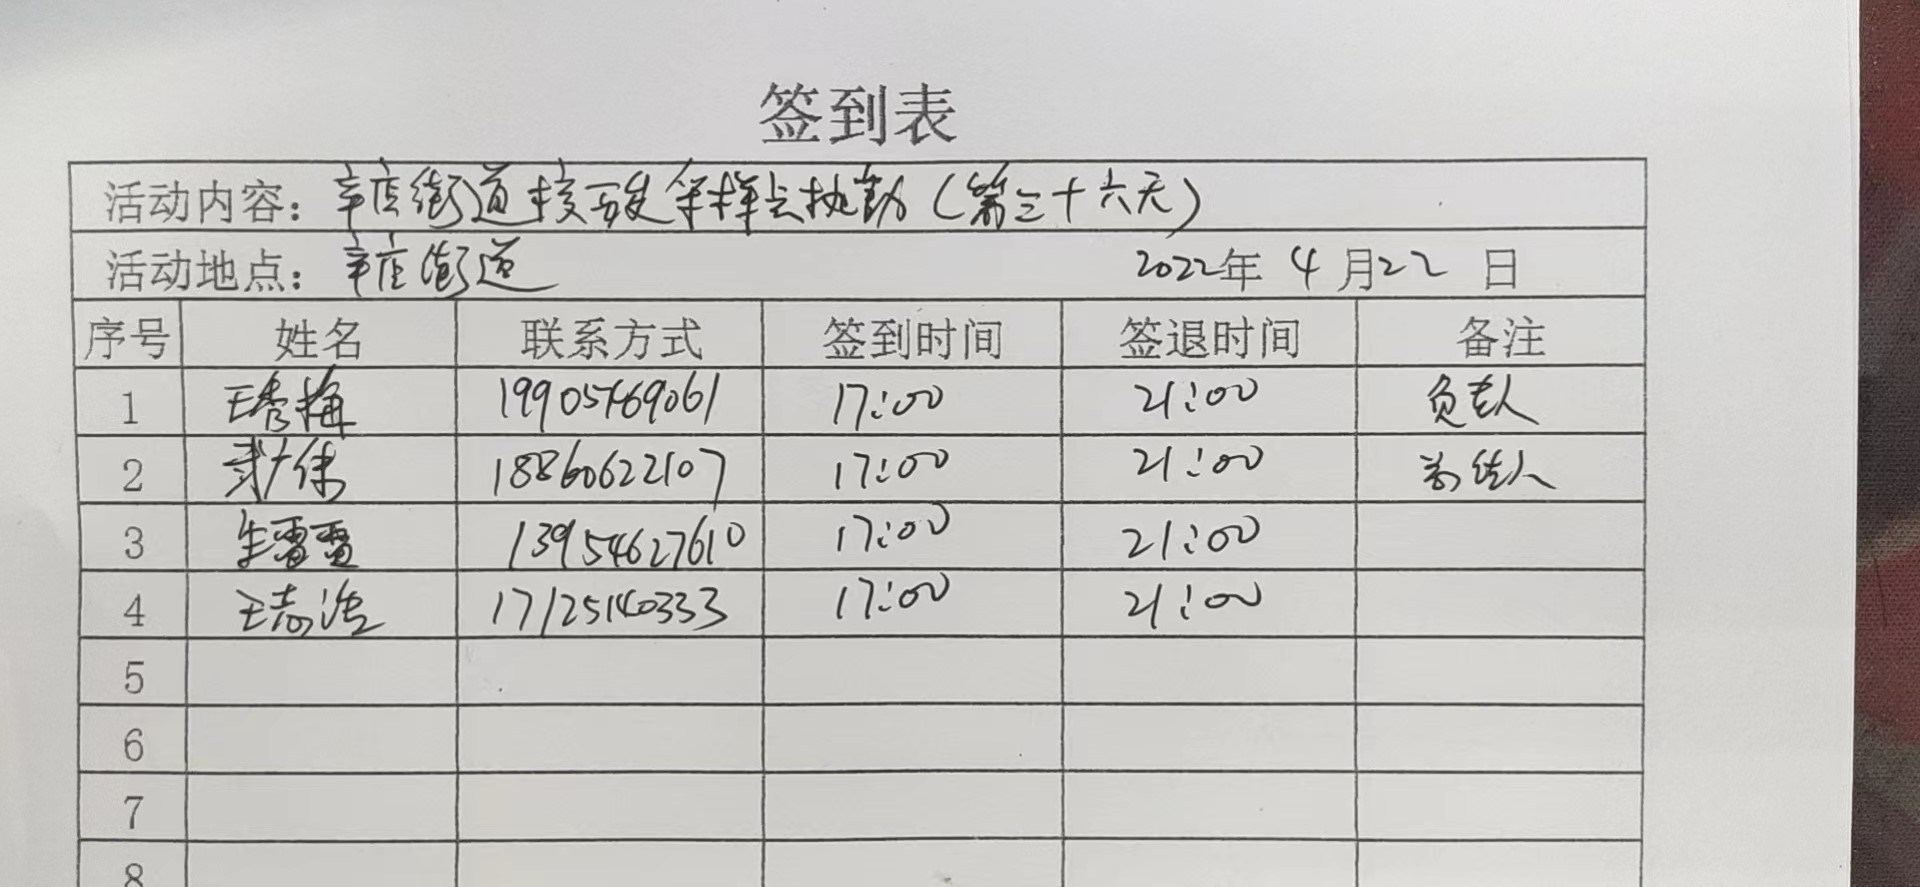 签到表
活动内容：辛店街道核酸采样点执勤（第三十六天）
活动地点：辛店街道 2022年 4月22日
序号 姓名 联系方式 签到时间 签退时间 备注
1 王秀梅 19905469061 17:00 21:00 负责人
2 18860622107 17:00 21:00
3 生雷雷 13954627610 17:00 21:00
4 王志浩 17125140333 17:00 21:00
5
6
7
8